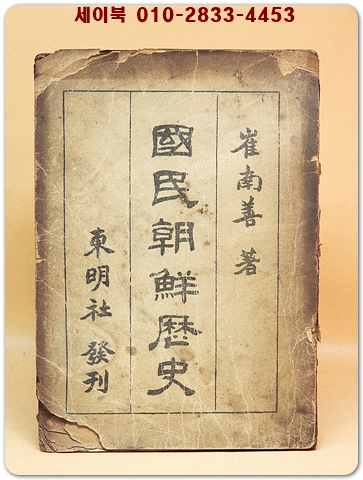 세이북 010-2833-4453
崔南善 著
國民朝鮮歷史
東明社 發刊